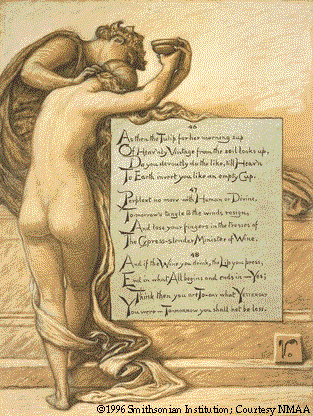 46
As then the Tulip for her morning sup
Of Heav'nly Vintage from the soil looks up,
Do you devoutly do the like, till Heav'n
To Earth invert you like an empty Cup.
47
Perplext no more with Human or Divine,
To-morrow's tangle to the winds resign,
And lose your fingers in the tresses of
The Cypress-slender Minister of Wine.
48
And if the Wine you drink, the Lip you press,
End in what All begins and ends in—Yes;
Think then you are To-day what Yesterday
You were—To-morrow you shall not be less.
©1996 Smithsonian Institution; Courtesy NMAA